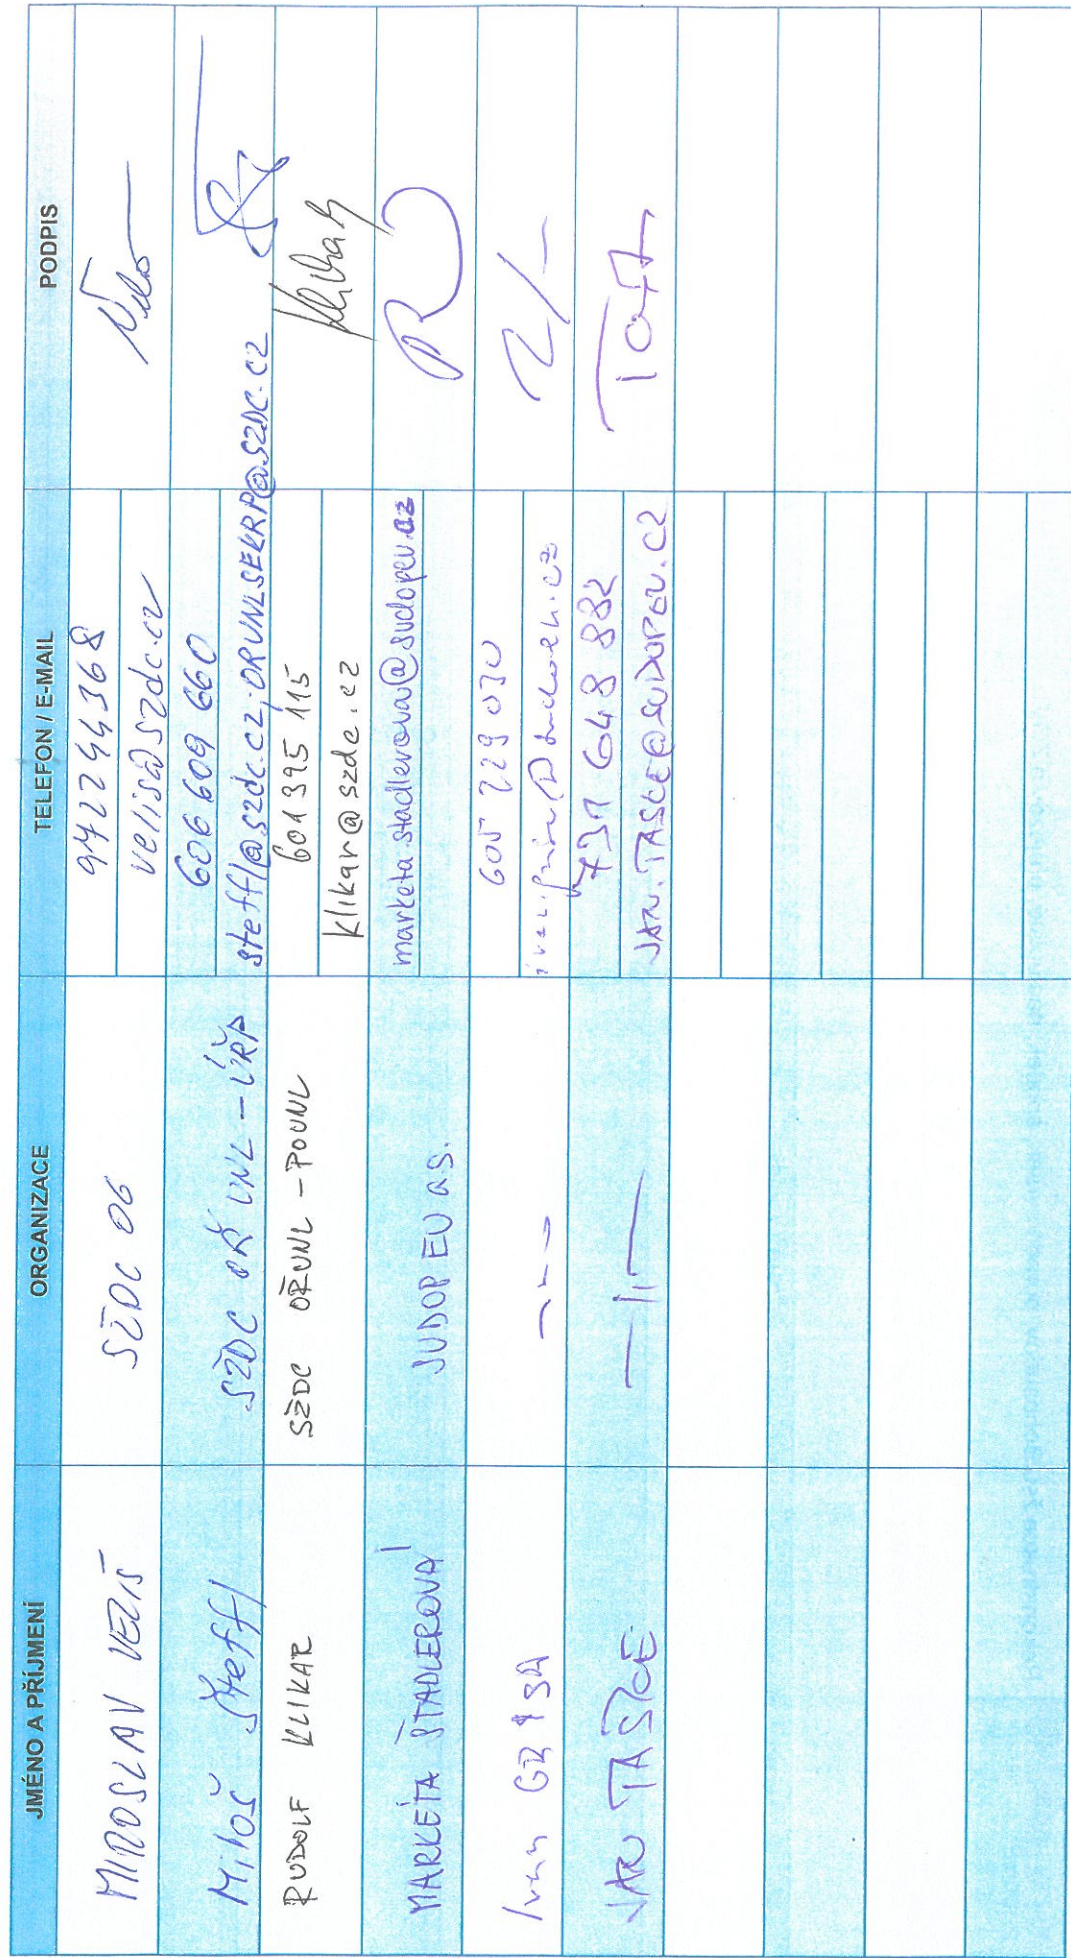 JMÉNO A PŘÍJMENÍ ORGANIZACE TELEFON / E-MAIL PODPIS
MIROSLAV VELIŠ SŽDC O6 972244368
velis@szdc.cz
Miloš Šteffl SŽDC OŘ UNL - ÚŘP 606 609 660
steffl@szdc.cz, ORUNLSEKRP@SZDC.CZ
RUDOLF KLIKAR SŽDC OŘUNL - POUNL 601 395 115
klikar@szdc.cz
MARKÉTA ŠTADLEROVÁ SUDOP EU a.s. marketa.stadlerova@sudopeu.cz
Ivan 605 229 070
JAN TASCE —11— 731 648 882
JAN.TASCE@SUDOPEU.CZ